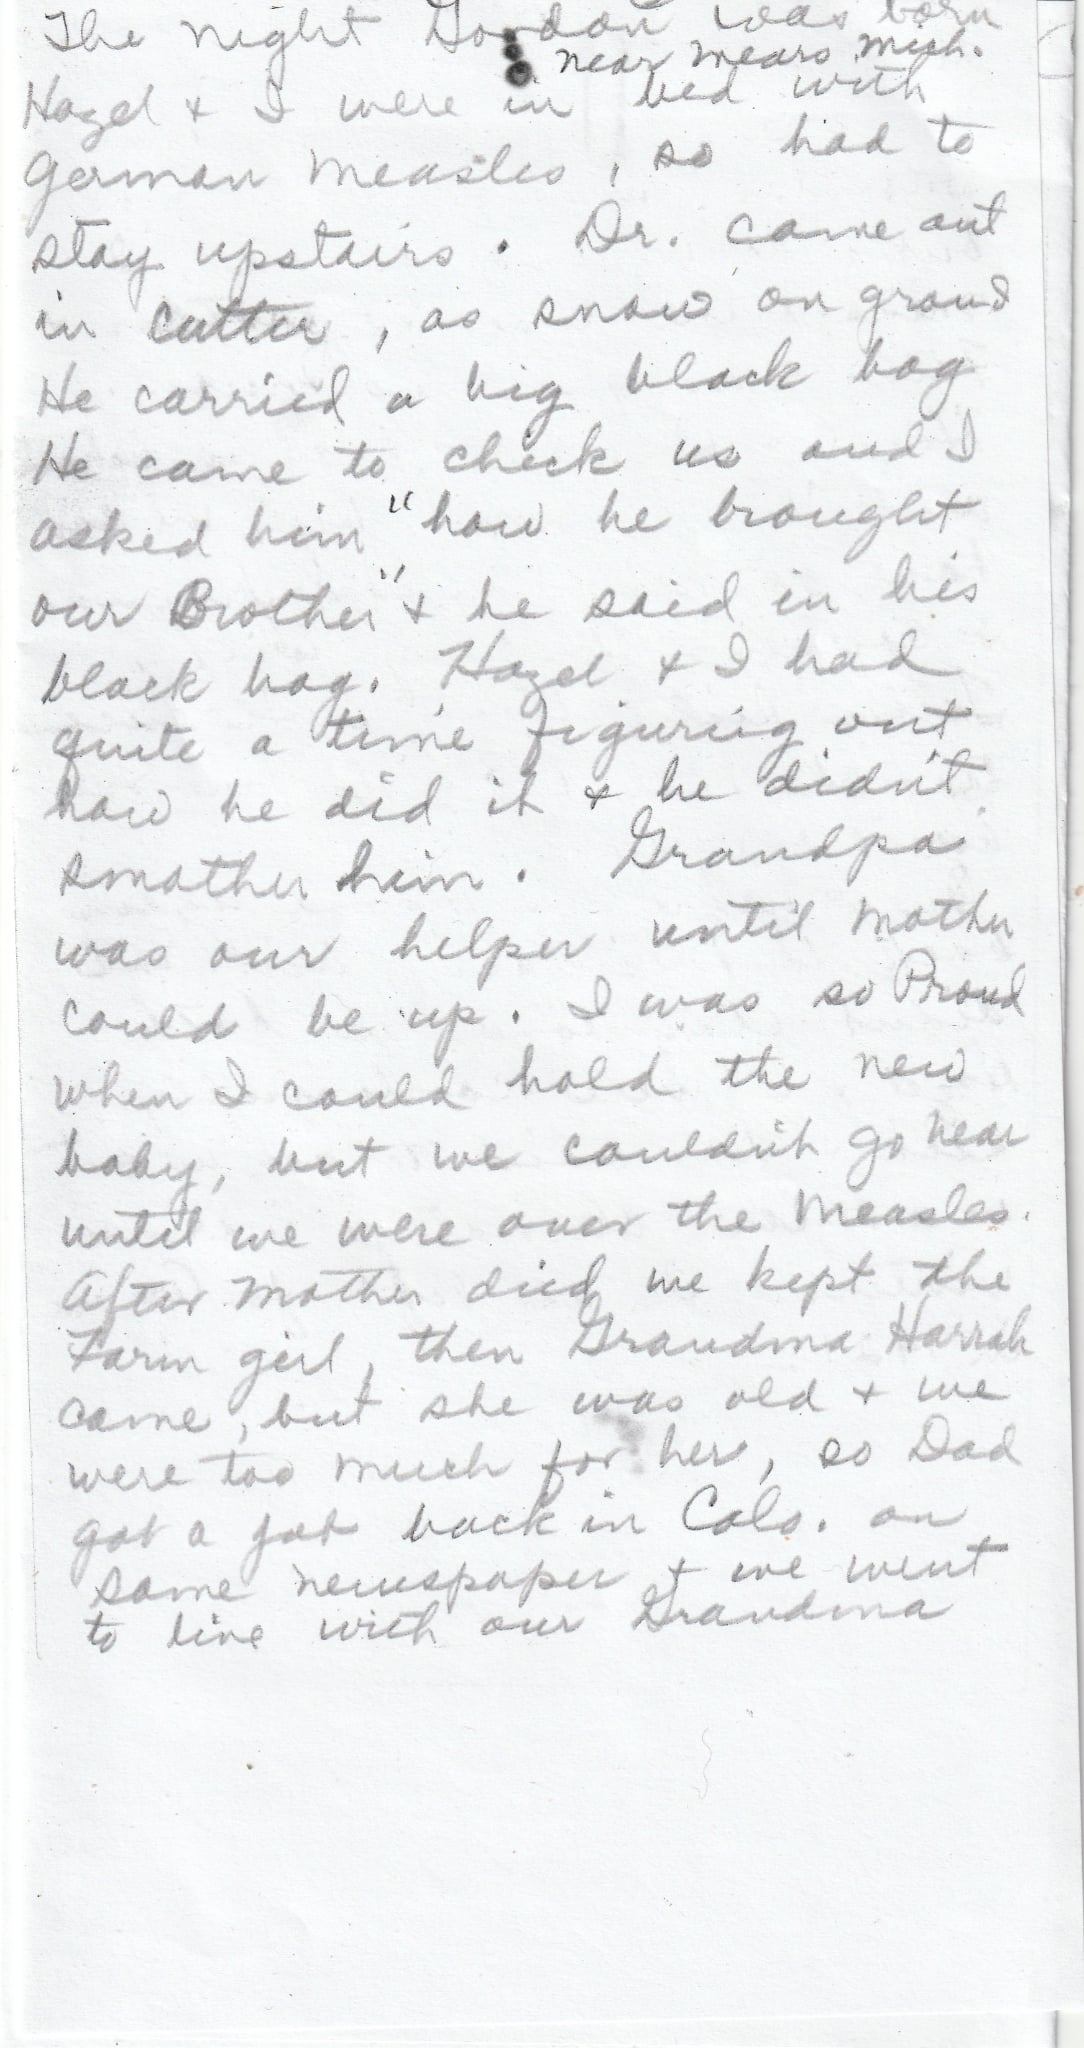 The night Gordon was born
near Mears, Mich.
Hazel & I were in bed with
German Measles, so had to
stay upstairs. Dr. came out
in cutter, as snow on ground
He carried a big black bag
He came to check us and I
asked him "how he brought
our Brother" & he said in his
black bag. Hazel & I had
quite a time figuring out
how he did it & he didn't
smother him. Grandpa
was our helper until Mother
could be up. I was so Proud
when I could hold the new
baby, but we couldn't go near
until we were over the Measles.
After Mother died we kept the
Farm girl, then Grandma Harrah
came, but she was old & we
were too much for her, so Dad
got a job back in Colo. on
some newspaper & we went
to live with our Grandma